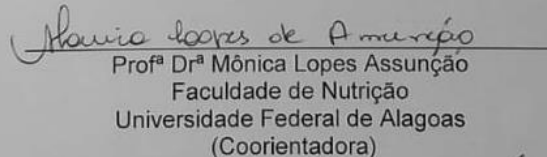 Mônica Lopes de Assunção
Profª Drª Mônica Lopes Assunção
Faculdade de Nutrição
Universidade Federal de Alagoas
(Coorientadora)